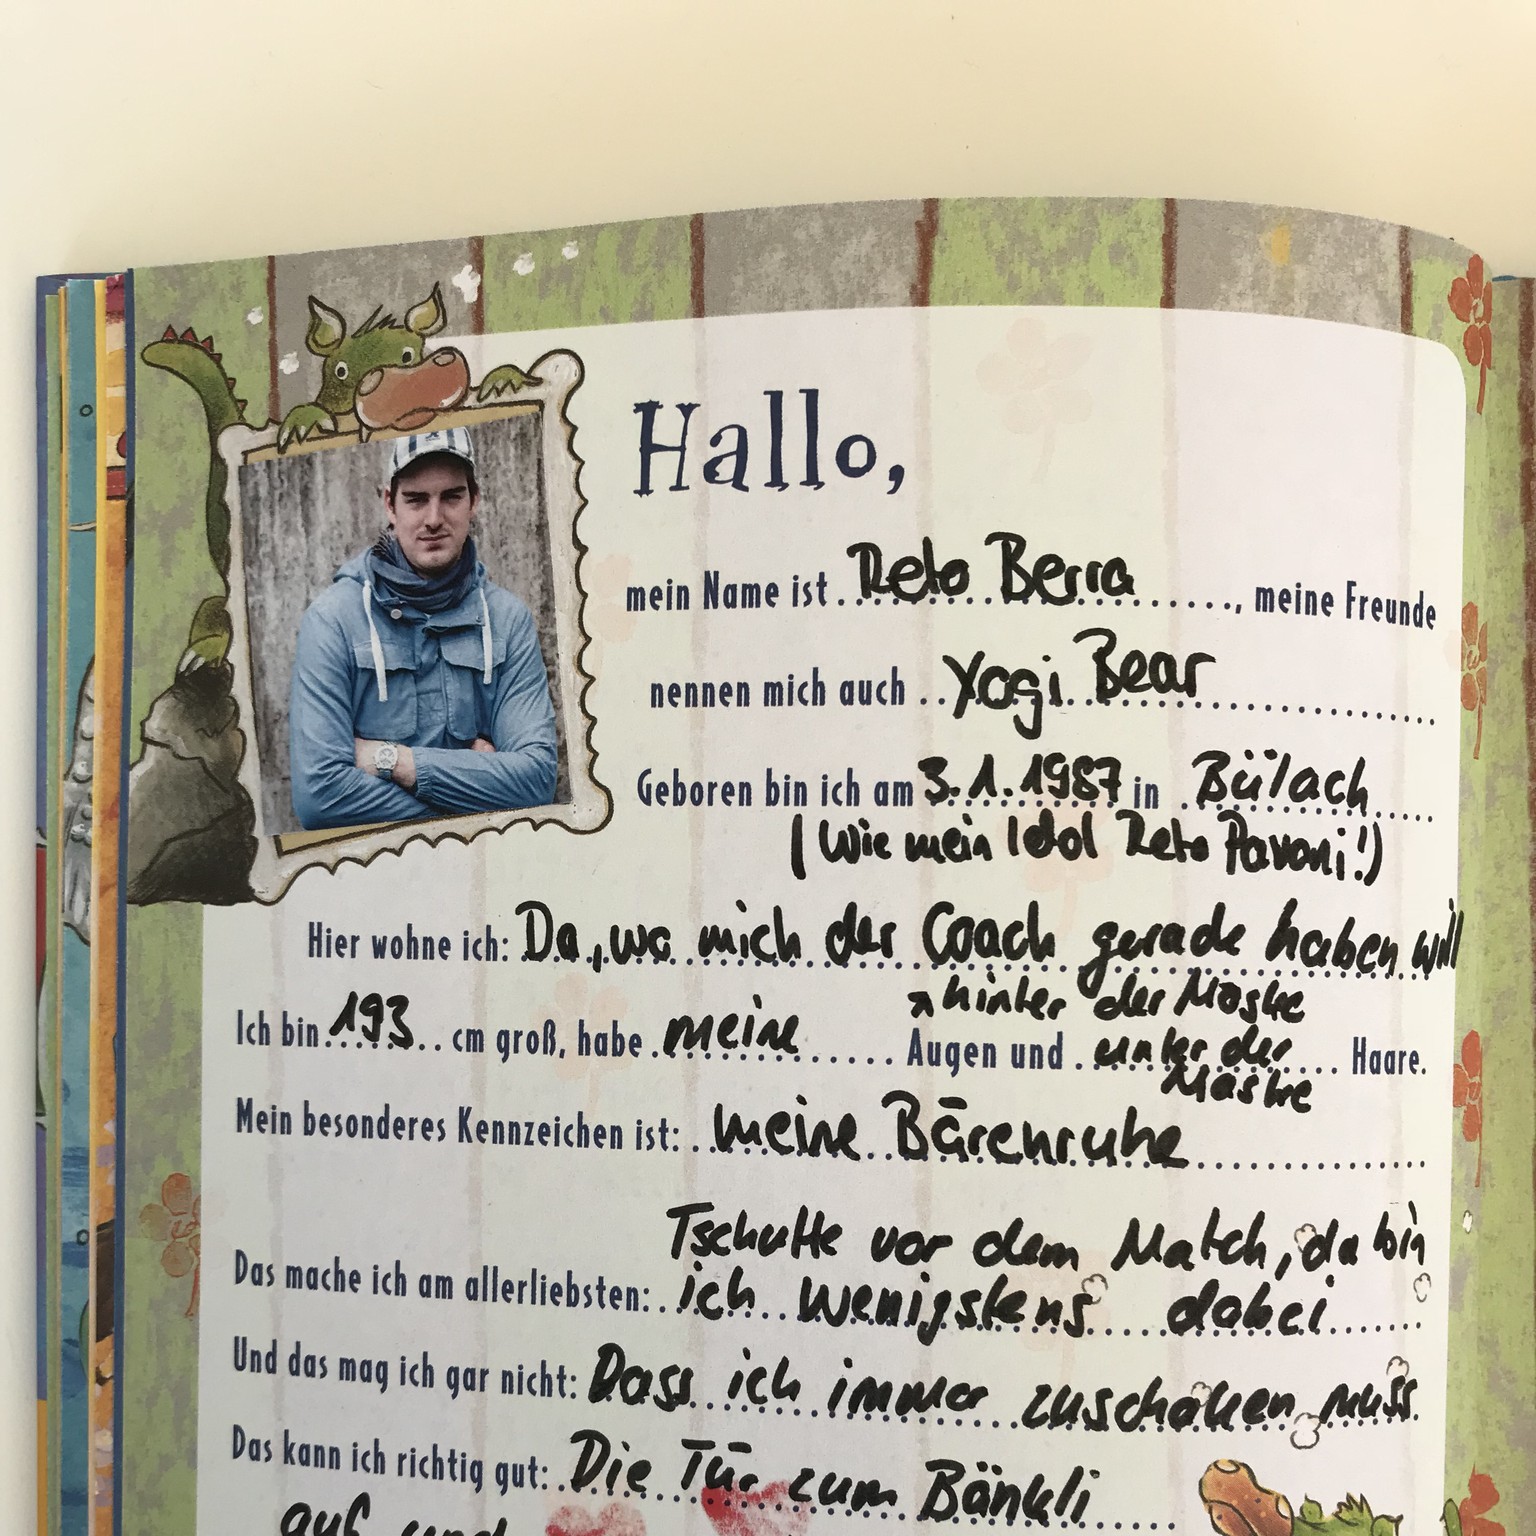 Hallo,
mein Name ist Reto Berra, meine Freunde
nennen mich auch Yogi Bear
Geboren bin ich am 3.1.1987 in Bülach
(Wie mein Idol Reto Pavoni!)
Hier wohne ich: Da, wo mich der Coach gerade haben will
hinter der Maske
Ich bin 193 cm groß, habe meine Augen und unter der Haare.
Maske
Mein besonderes Kennzeichen ist: meine Bärenruhe
Tschutte vor dem Match, da bin
Das mache ich am allerliebsten: ich wenigstens dabei
Und das mag ich gar nicht: Dass ich immer zuschauen muss.
Das kann ich richtig gut: Die Tür zum Bänkli
auf und